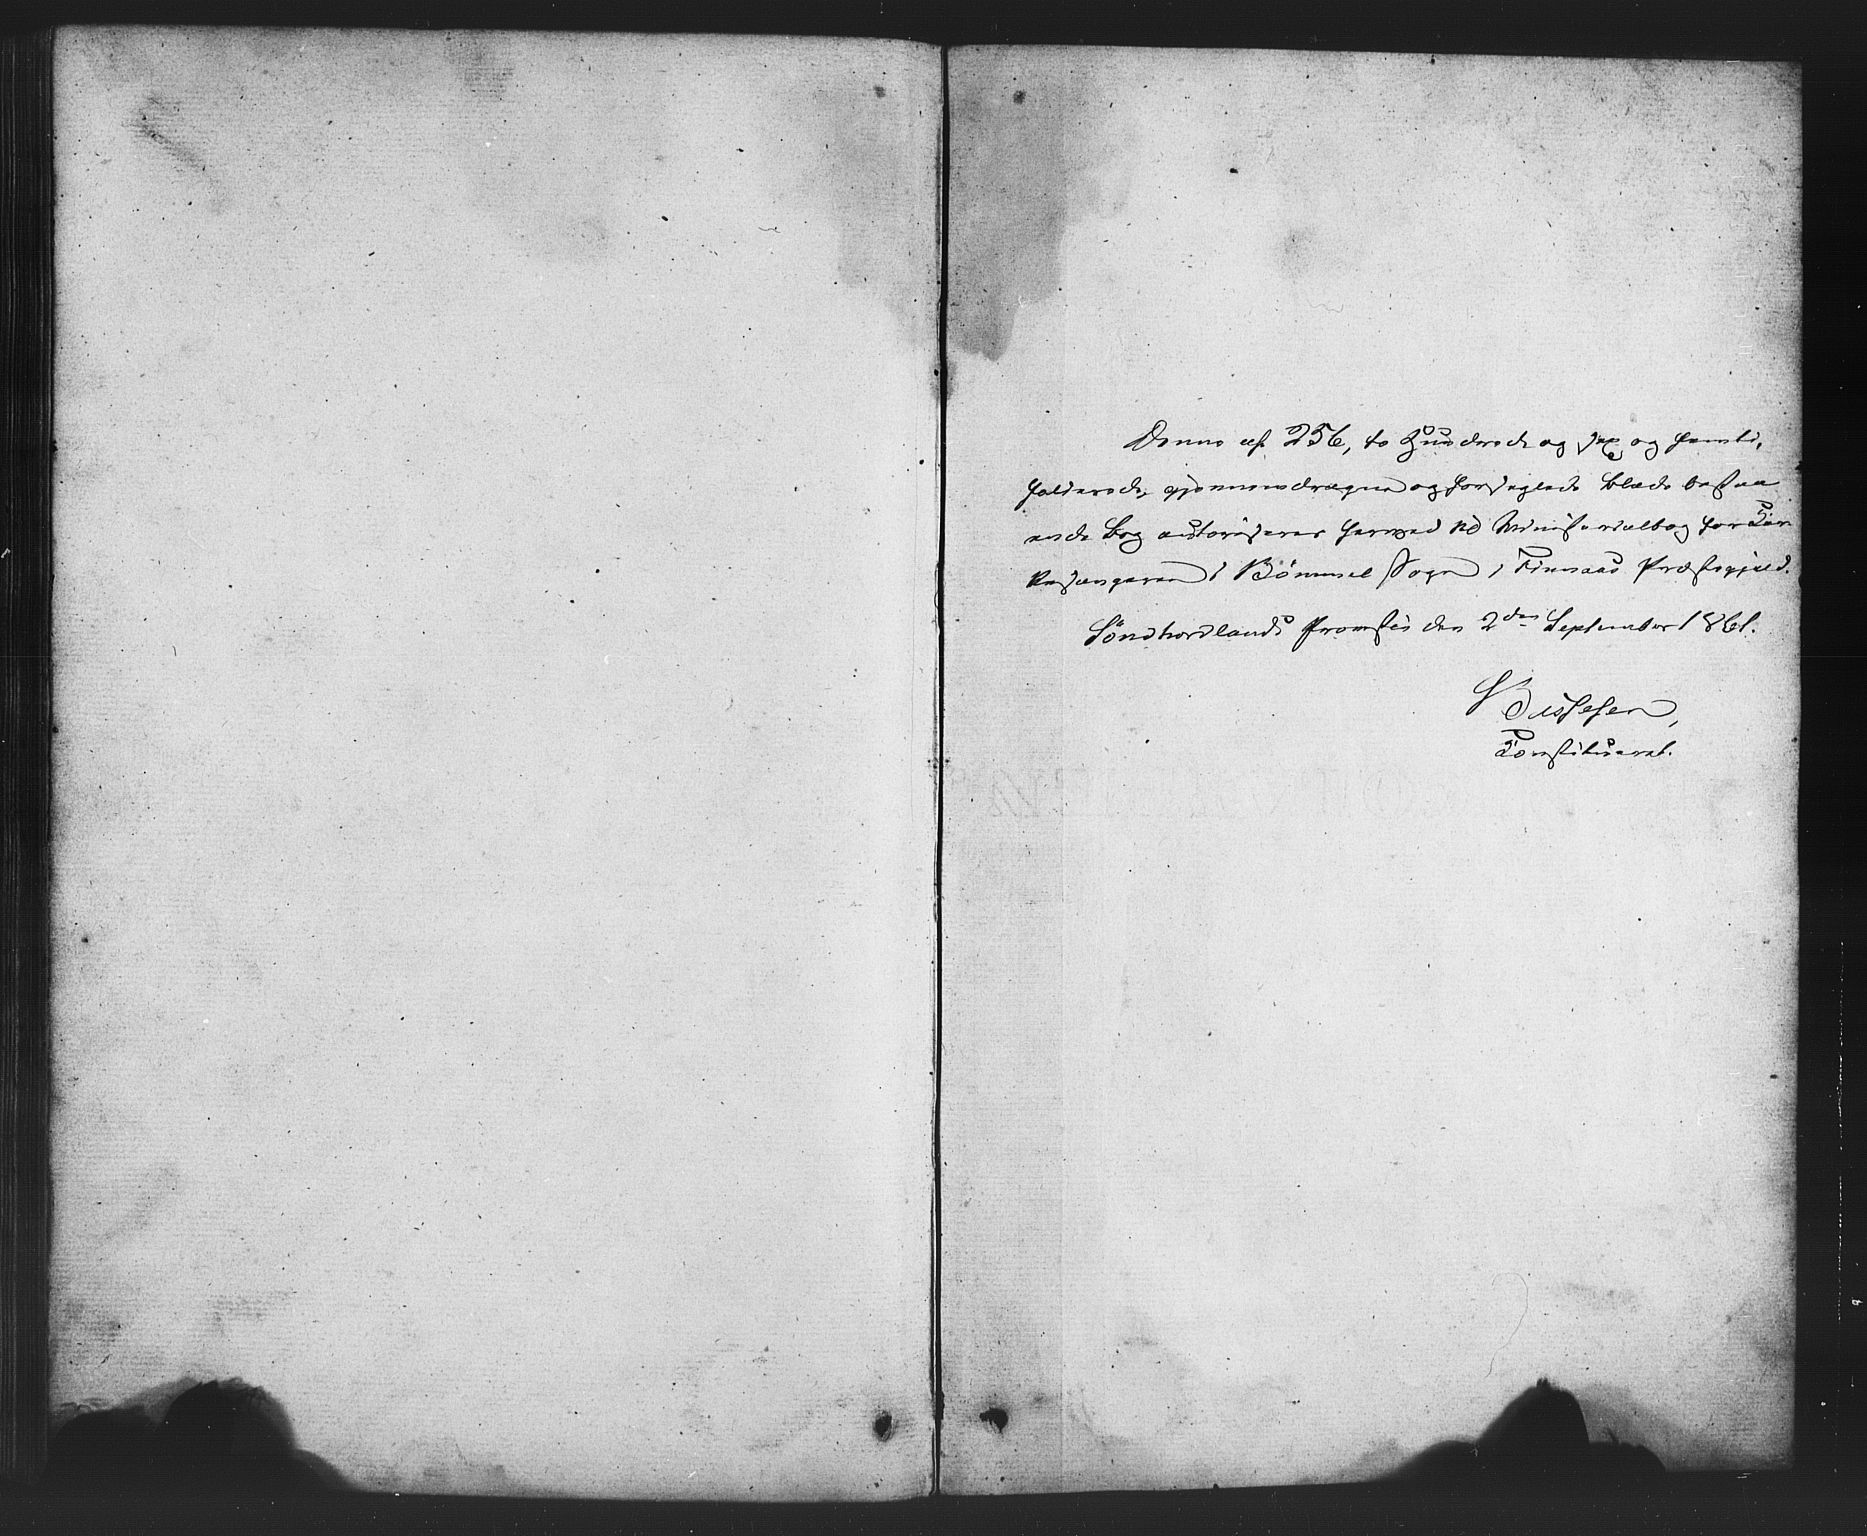 Denne af 256, to Hundrede og sex og femti,
folierede, gjennemdragne og forseglede Blade bestaa
ende Bog autoriseres herved til Ministerialbog for
i Bömmel Sogn i Finnaas Præstegjeld.
Söndhordlands Provsti den 2den September 1861.
Constitueret.